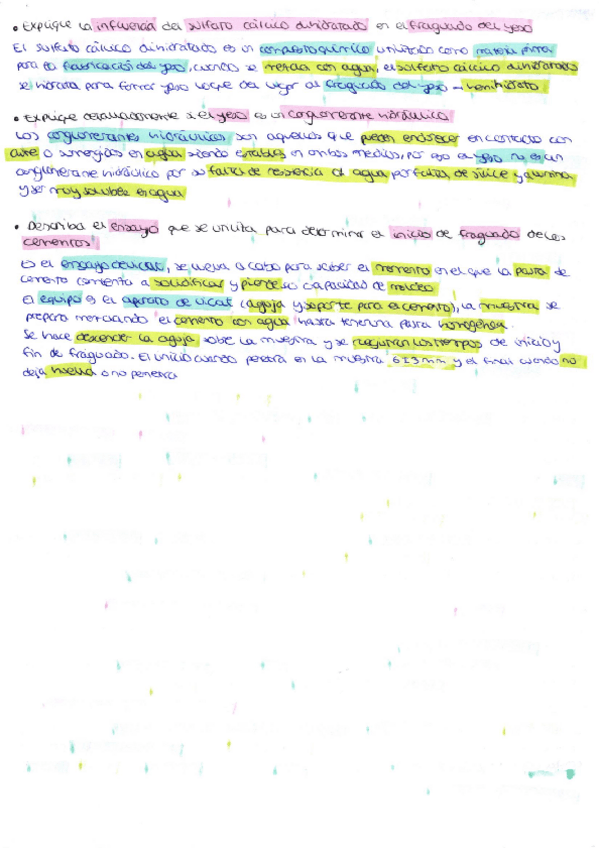 • Explique la influencia del sulfato cálcico dihidratado en el fraguado del yeso
El sulfato cálcico dihidratado es un compuesto químico utilizado como materia prima
para la fabricación del yeso, cuando se mezcla con agua, el sulfato cálcico dihidratado
se hidrata para formar yeso y que da lugar al fraguado del yeso → hemihidrato
• Explique razonadamente si el yeso es un conglomerante hidráulico
Los conglomerantes hidráulicos son aquellos que pueden endurecer en contacto con
aire o sumergidos en agua siendo estables en ambos medios, por eso el yeso no es un
conglomerante hidráulico por su falta de resistencia al agua por falta de sílice y alumina
y ser muy soluble en agua
• Describa el ensayo que se utiliza para determinar el inicio de fraguado de los
cementos
Es el ensayo de vicat, se lleva a cabo para saber el momento en el que la pasta de
cemento comienza a solidificar y pierde su capacidad de moldeo
El equipo es el aparato de vicat (aguja y soporte para el cemento), la muestra se
prepara mezclando el cemento con agua hasta tener una pasta homogénea.
Se hace descender la aguja sobre la muestra y se registran los tiempos de inicio y
fin de fraguado. El inicio cuando penetra en la muestra 6±3 mm y el final cuando no
deja huella o no penetra